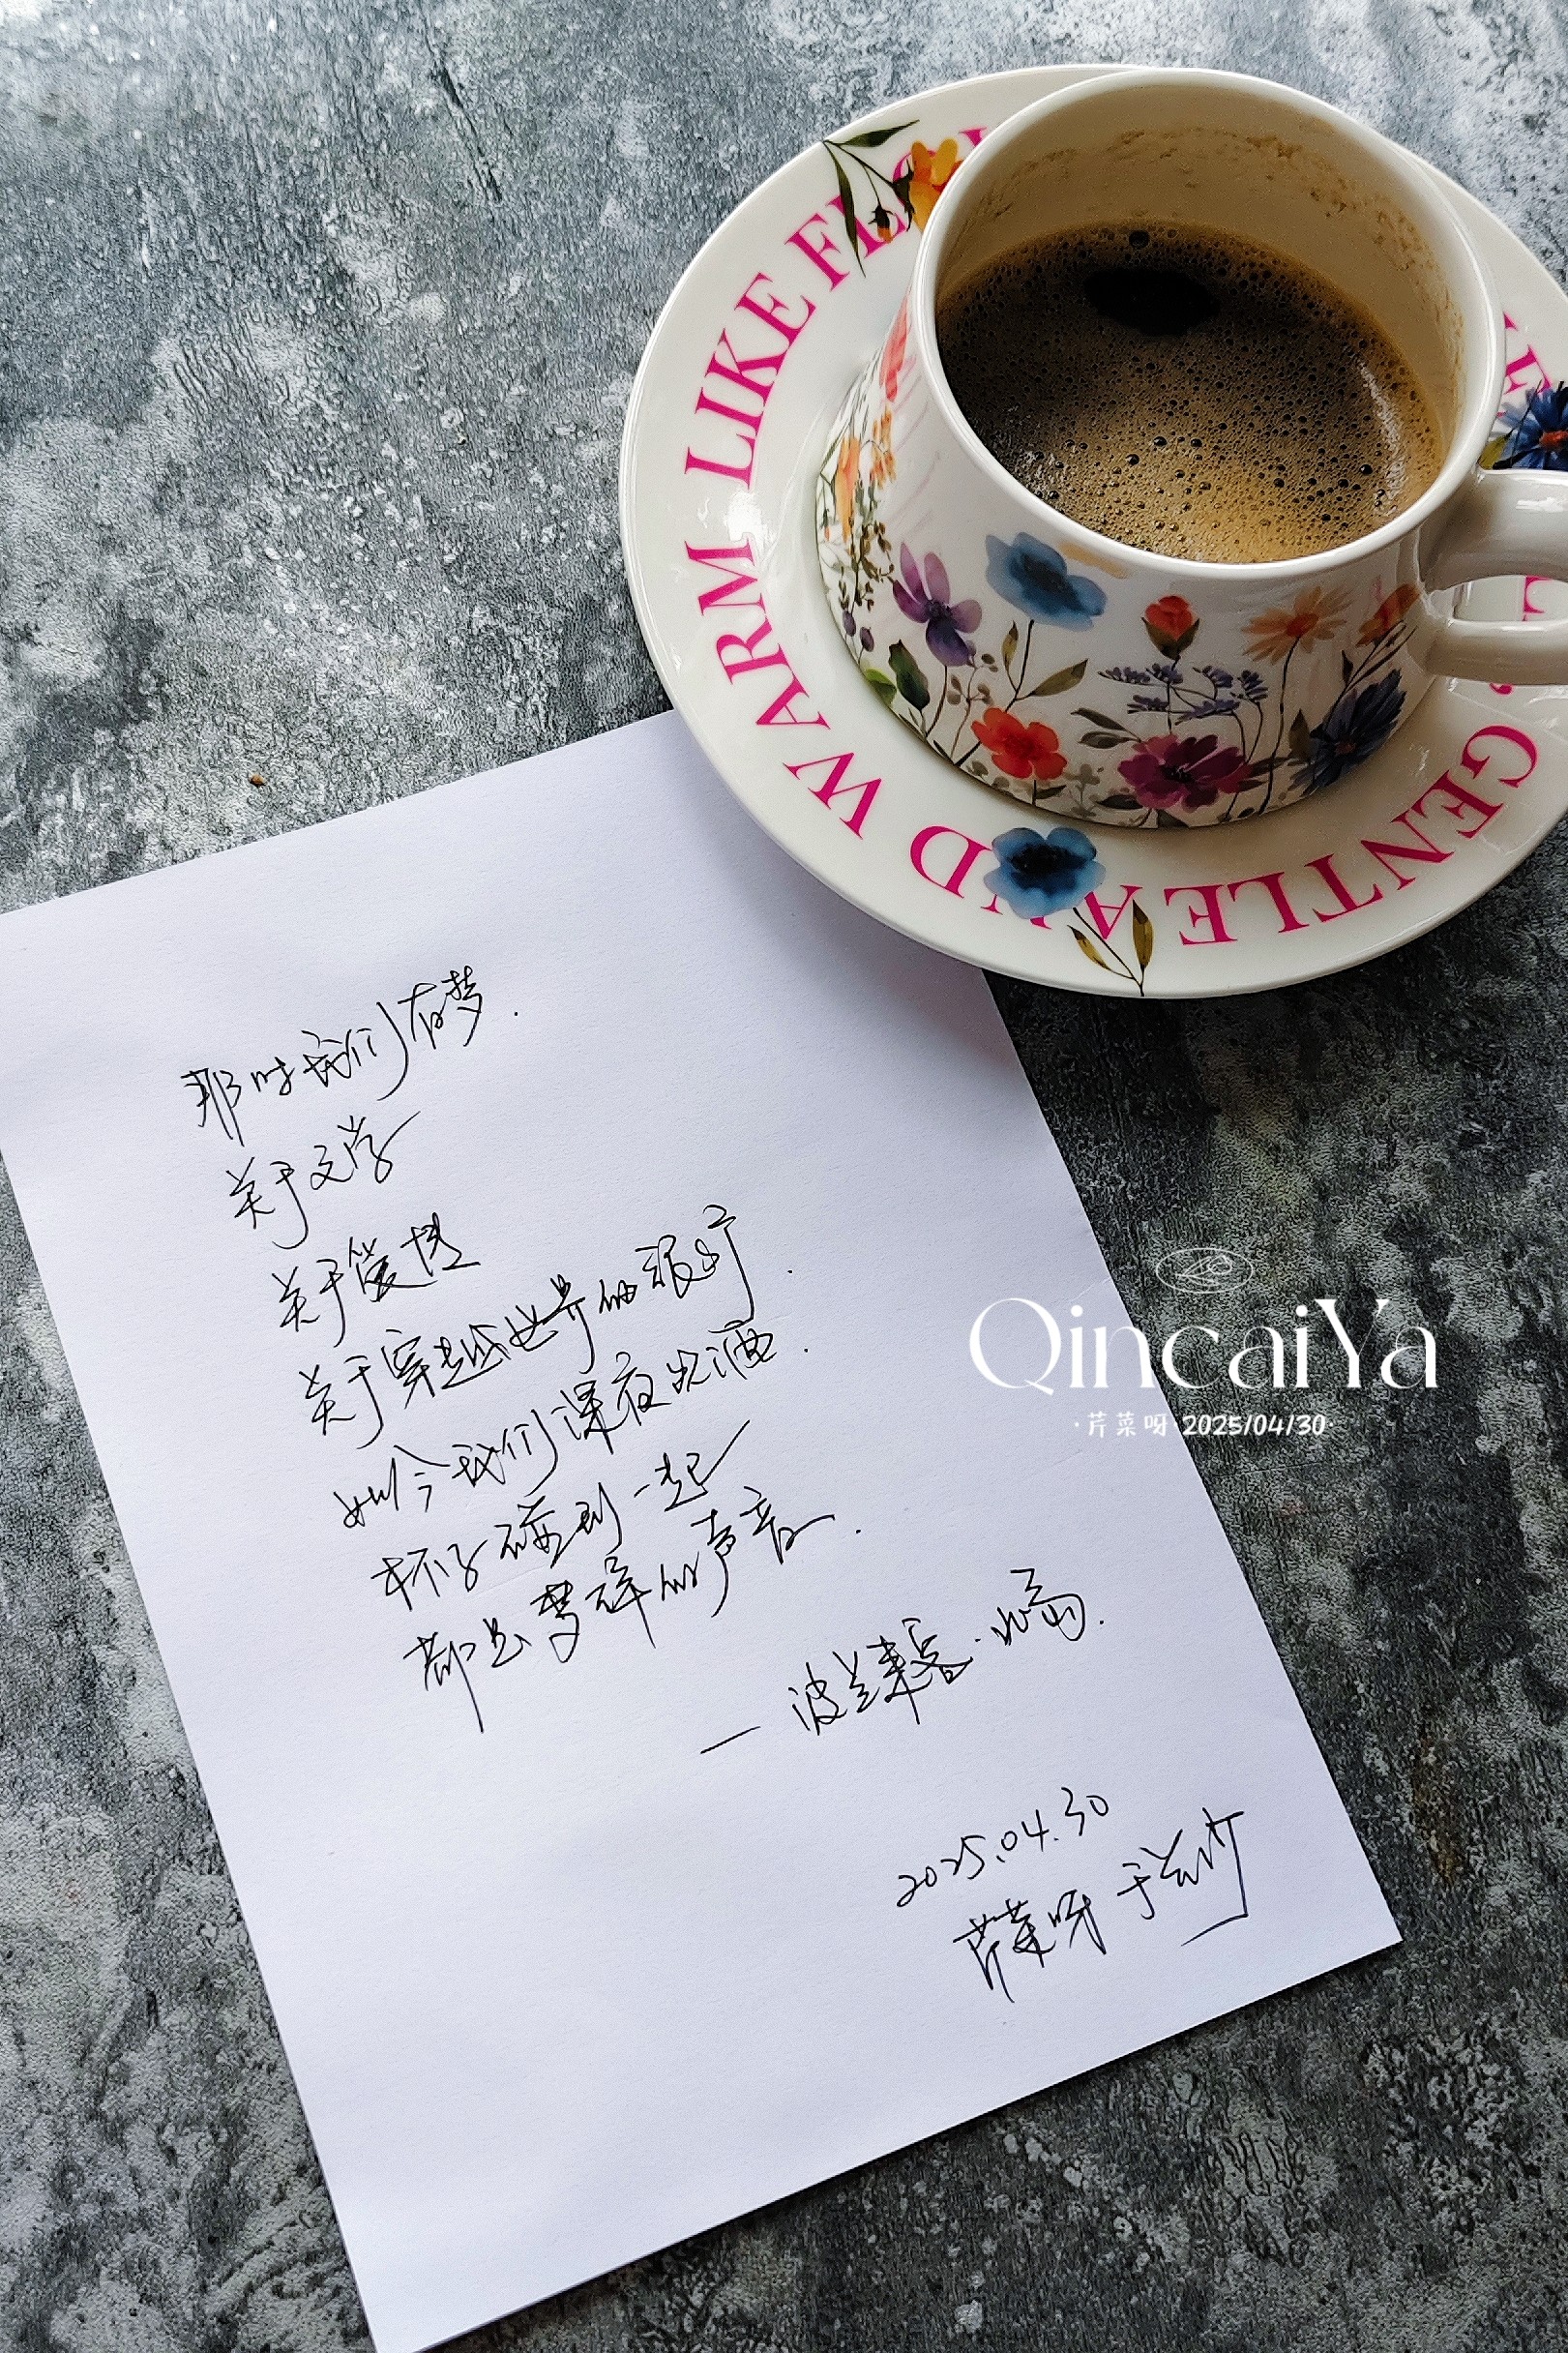 GENTLE AND WARM LIKE
那时我们有梦.
关于文学
关于爱情
关于穿越世界的旅行.
如今我们深夜饮酒.
杯子碰到一起
都是梦碎的声音.
— 波兰来客·北岛.
2025.04.30
芹菜呀 于
QincaiYa
·芹菜呀·2025/04/30·